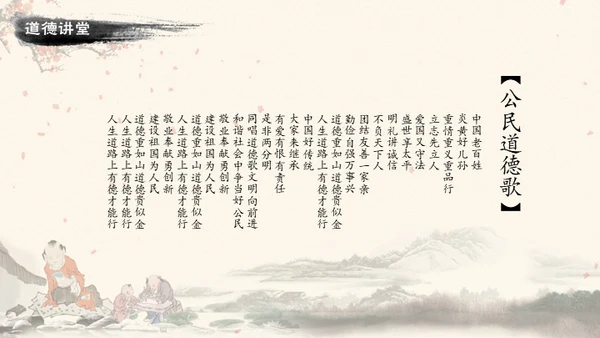 道德讲堂
【公民道德歌】
中国老百姓
炎黄好儿孙
重情重义重品行
立志先立人
爱国又守法
盛世享太平
明礼讲诚信
不负天下人
团结友善一家亲
勤俭自强万事兴
道德重如山道德贵似金
人生道路上有德才能行
中国好传统
大家来继承
有爱有恨有责任
是非两分明
同唱道德歌文明向前进
和谐社会中争当好公民
敬业奉献勇创新
建设祖国为人民
道德重如山道德贵似金
人生道路上有德才能行
敬业奉献勇创新
建设祖国为人民
道德重如山道德贵似金
人生道路上有德才能行
人生道路上有德才能行